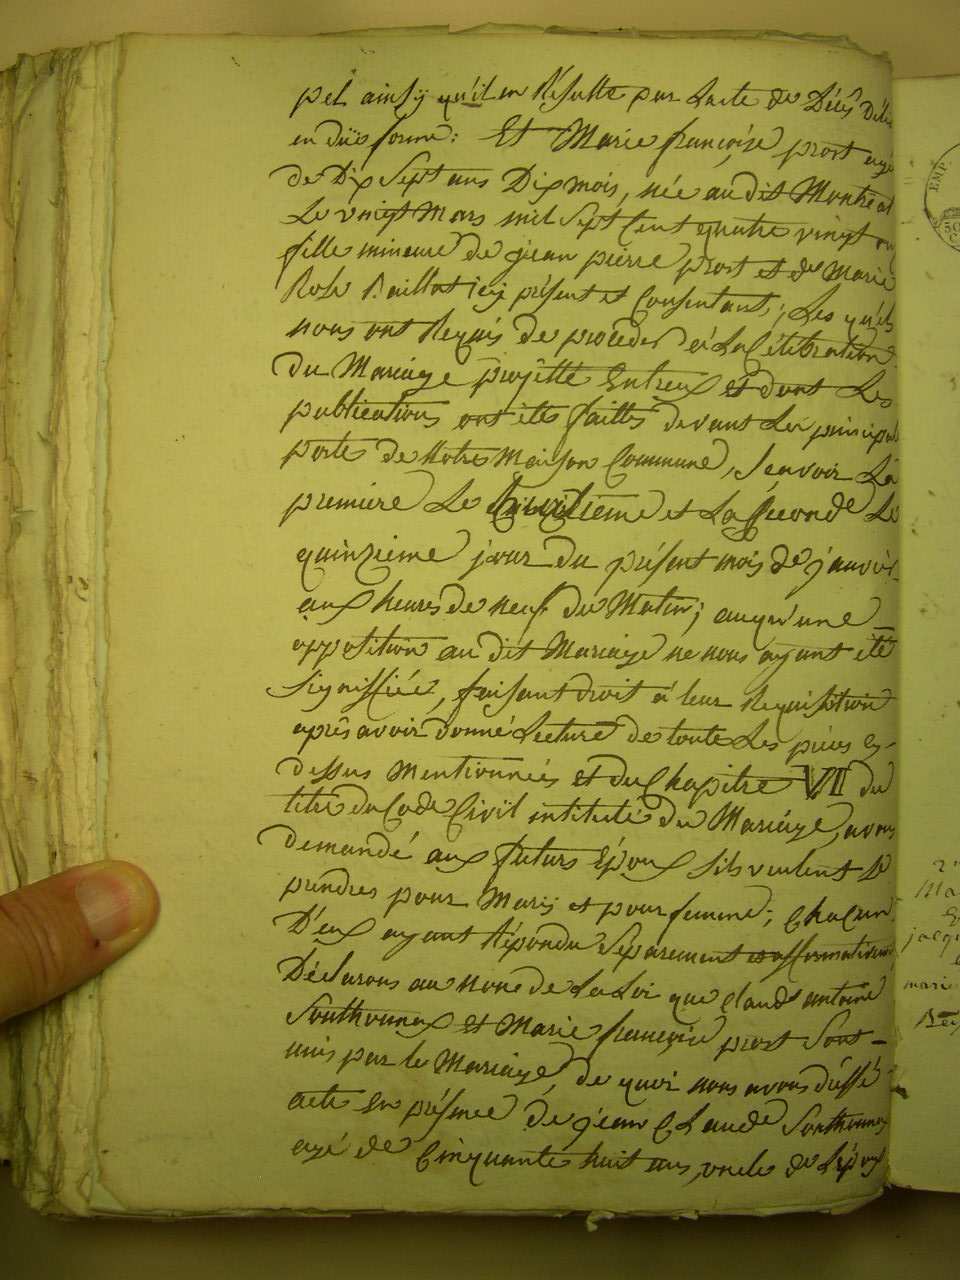 pel ainsÿ qu'il en Résulte par Lacte de Décés Déli
en düe forme: Et Marie françoise prost agé
de Dix Sept ans Dix mois, née au dit Montréal
Le vingt Mars mil Sept Cent quatre vingt on
fille mineure de jean pierre prost et de Marie
Rose Baillat icy présent et Consentant; Les quels
nous ont Requis de proceder à La Célébration
du Mariage projetté Entreux et dont Les
publications ont étés faittes devant La principale
porte de Notre Maison Commune, Scavoir La
première Le huitieme et La Seconde Le
quinzième jour du présent mois de janvier
aux heures de neuf du Matin; auqu'une
opposition au dit Mariage ne nous ayant été
Signiffiée, faisant droit à leur Requisition
après avoir donné Lecture de toute Les pièces cy-
dessus Mentionnées et du Chapitre VI du
titre du Code Civil intitulé du Mariage, avons
demandé aux futurs Epoux s'ils veulent se
prendres pour Mary et pour femme; Chacun
D'eux ayant Répondu Séparement et affirmativement
Déclarons au nom de La Loi que Claude antoine
Southonnax et Marie françoise prost Sont
unis par le Mariage, de quoi nous avons dressé
acte en présence de jean Claude Southonnax
agé de Cinquante huit ans, oncle de L'époux
EMP
Ma
jacq
mari